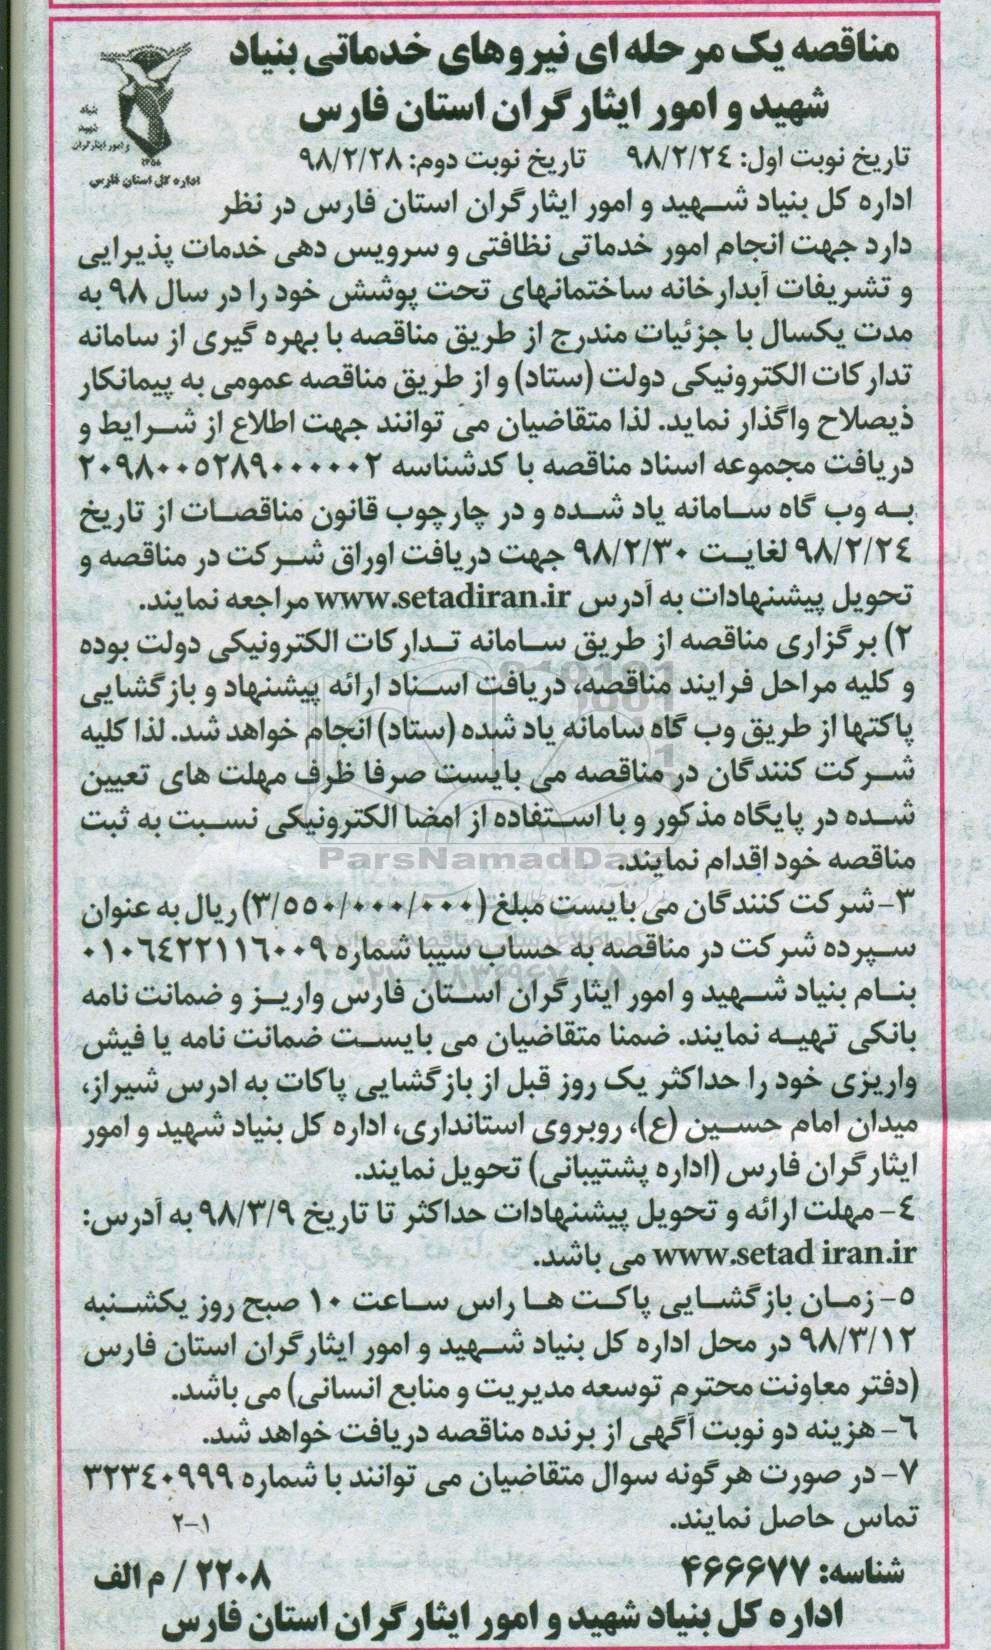 مناقصه یک مرحله ای نیروهای خدماتی بنیاد
شهید و امور ایثارگران استان فارس
بنیاد
شهید
و امور ایثارگران
اداره کل استان فارس
تاریخ نوبت اول: ۹۸/۲/۲٤ تاریخ نوبت دوم: ۹۸/۲/۲۸
اداره کل بنیاد شهید و امور ایثارگران استان فارس در نظر
دارد جهت انجام امور خدماتی نظافتی و سرویس دهی خدمات پذیرایی
و تشریفات آبدارخانه ساختمانهای تحت پوشش خود را در سال ۹۸ به
مدت یکسال با جزئیات مندرج از طریق مناقصه با بهره گیری از سامانه
تدارکات الکترونیکی دولت (ستاد) و از طریق مناقصه عمومی به پیمانکار
ذیصلاح واگذار نماید. لذا متقاضیان می توانند جهت اطلاع از شرایط و
دریافت مجموعه اسناد مناقصه با کدشناسه ۲۰۹۸۰۰۵۲۸۹۰۰۰۰۰۲
به وب گاه سامانه یاد شده و در چارچوب قانون مناقصات از تاریخ
۹۸/۲/۲٤ لغایت ۹۸/۲/۳۰ جهت دریافت اوراق شرکت در مناقصه و
تحویل پیشنهادات به آدرس www.setadiran.ir مراجعه نمایند.
۲) برگزاری مناقصه از طریق سامانه تدارکات الکترونیکی دولت بوده
و کلیه مراحل فرایند مناقصه، دریافت اسناد ارائه پیشنهاد و بازگشایی
پاکتها از طریق وب گاه سامانه یاد شده (ستاد) انجام خواهد شد. لذا کلیه
شرکت کنندگان در مناقصه می بایست صرفا ظرف مهلت های تعیین
شده در پایگاه مذکور و با استفاده از امضا الکترونیکی نسبت به ثبت
مناقصه خود اقدام نمایند.
ParsNamadData
۳- شرکت کنندگان می بایست مبلغ (۳/۵۵۰/۰۰۰/۰۰۰) ریال به عنوان
سپرده شرکت در مناقصه به حساب سیبا شماره ۰۱۰۶٤۲۲۱۱۶۰۰۹
بنام بنیاد شهید و امور ایثارگران استان فارس واریز و ضمانت نامه
بانکی تهیه نمایند. ضمنا متقاضیان می بایست ضمانت نامه یا فیش
واریزی خود را حداکثر یک روز قبل از بازگشایی پاکات به ادرس شیراز،
میدان امام حسین (ع)، روبروی استانداری، اداره کل بنیاد شهید و امور
ایثارگران فارس (اداره پشتیبانی) تحویل نمایند.
٤- مهلت ارائه و تحویل پیشنهادات حداکثر تا تاریخ ۹۸/۳/۹ به آدرس:
www.setad iran.ir می باشد.
۵- زمان بازگشایی پاکت ها راس ساعت ۱۰ صبح روز یکشنبه
۹۸/۳/۱۲ در محل اداره کل بنیاد شهید و امور ایثارگران استان فارس
(دفتر معاونت محترم توسعه مدیریت و منابع انسانی) می باشد.
۶- هزینه دو نوبت آگهی از برنده مناقصه دریافت خواهد شد.
۷- در صورت هرگونه سوال متقاضیان می توانند با شماره ۳۲۳٤۰۹۹۹
تماس حاصل نمایند.
۲-۱
شناسه: ۴۶۶۶۷۷
۲۲۰۸ / م الف
اداره کل بنیاد شهید و امور ایثارگران استان فارس